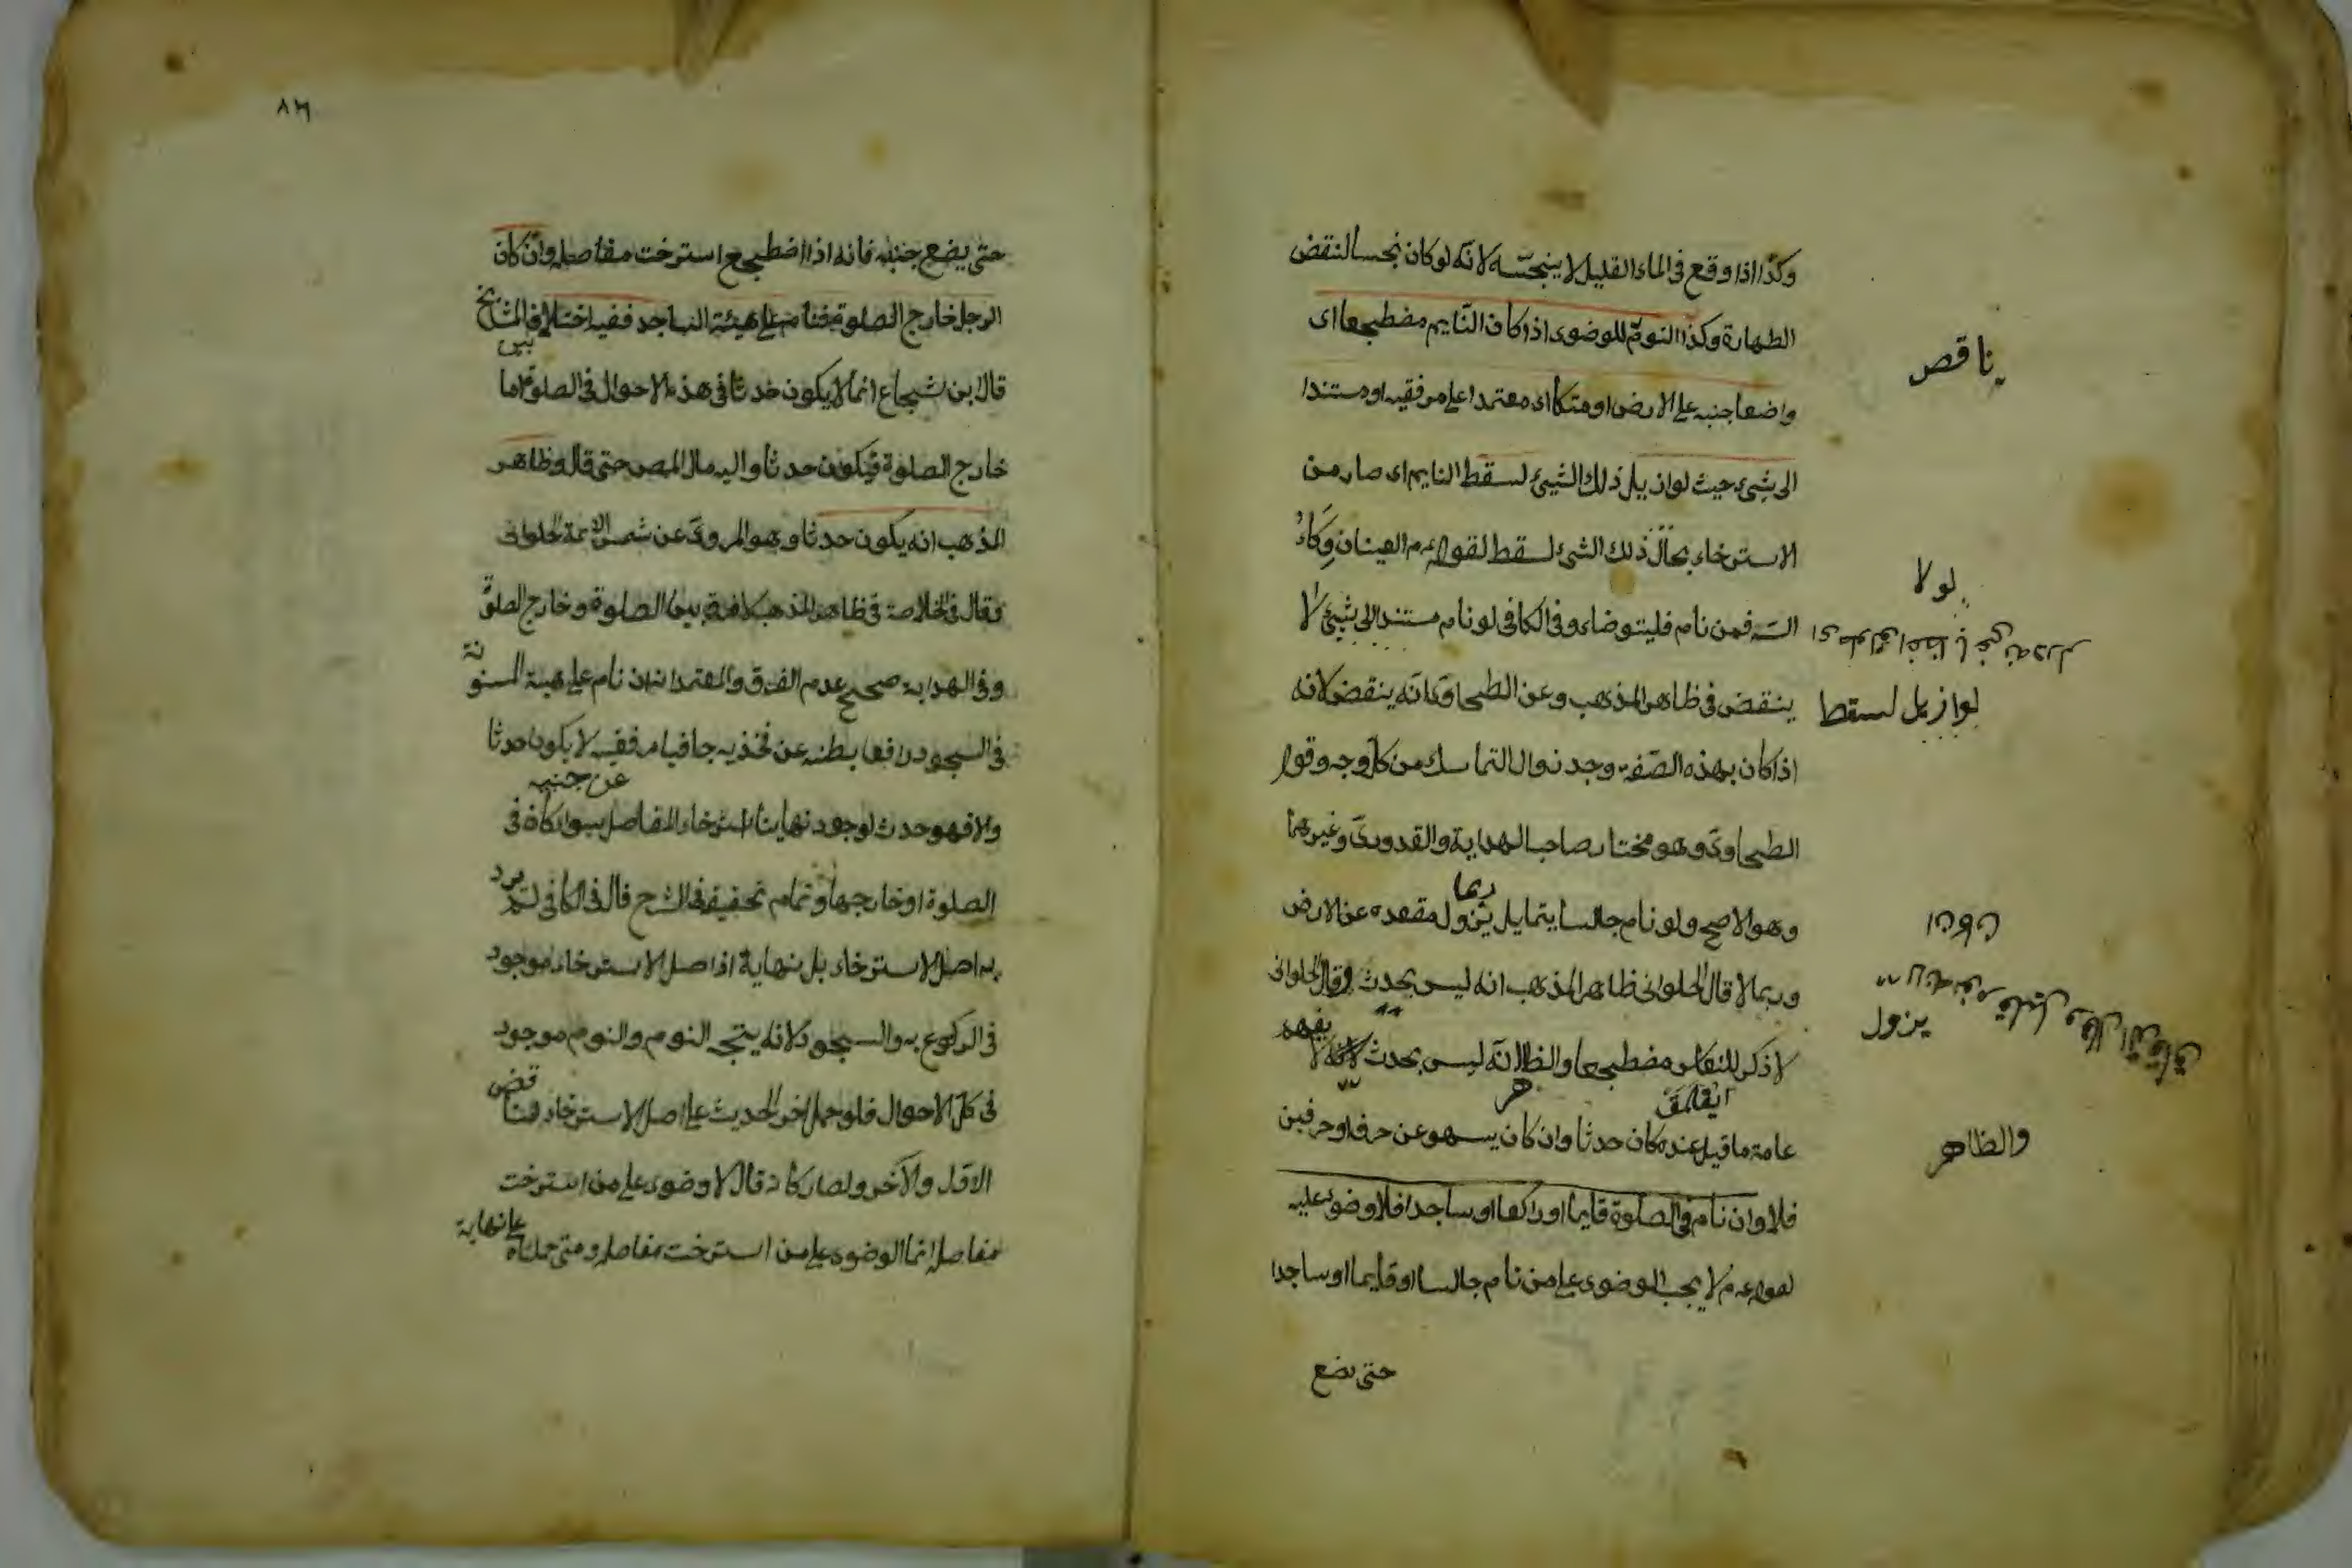 وكذا اذا وقع فى الماء القليل لا ينجسه لانه لو كان نجسا لنقض
الطهارة وكذا النوم للوضوى اذا كان النايم مضطجعا اى
ناقص
واضعا جنبه على الارض او متكا اى معتمدا على مرفقيه او مستندا
الى شىء حيث لو ازيل ذلك الشيئ لسقط النايم اى صار من
الاسترخاء بحال ذلك الشئ لسقط لقوله عم العينان وكاء
لولا
السه فمن نام فليتوضاء وفى الكافى لو نام مستندا الى شيئ لا
لو ازيل لسقط
ينقض فى ظاهر المذهب وعن الطحاوى انه ينقض لانه
اذا كان بهذه الصفة وجد زوال التماسك من كل وجه وقول
الطحاوى وهو مختار صاحب الهداية والقدورى وغيرهما
وهو الاصح ولو نام جالسا يتمايل ربما يزول مقعده عن الارض
وربما لا قال الحلوانى ظاهر المذهب انه ليس بحدث وقال الحلوانى
يزول
لا ذكر للنعاس مضطجعا والظ انه ليس بحدث لانه لا يفهم
والظاهر
عامة ما قيل عنده كان حدثا وان كان يسهو عن حرف او حرفين
فلا وان نام فى الصلوة قايما او راكعا او ساجدا فلا وضوء عليه
لقوله عم لا يجب الوضوى على من نام جالسا او قايما او ساجدا
حتى يضع
٨٦
حتى يضع جنبه فانه اذا اضطجع استرخت مفاصله وان كان
الرجل خارج الصلوة فنام على هيئة الساجد ففيه اختلاف المشايخ
قال ابن شجاع انما لا يكون حدثا فى هذه الاحوال فى الصلوة اما
خارج الصلوة فيكون حدثا واليه مال المص حتى قال وظاهر
المذهب انه يكون حدثا وهو المروى عن شمس الائمة الحلوانى
وقال فى الخلاصة فى ظاهر المذهب لا فرق بين الصلوة وخارج الصلوة
وفى الهداية صحيح عدم الفرق والمعتمد انه ان نام على هيئة المسنونة
فى السجود رافعا بطنه عن فخذيه جافيا مرفقيه لا يكون حدثا
عن جنبيه
والا فهو حدث لوجود نهاية استرخاء المفاصل سواء كان فى
الصلوة او خارجها وتمام تحقيقه فى الشرح قال فى الكافى لم يرد
به اصل الاسترخاء بل نهاية اذ اصل الاسترخاء موجود
فى الركوع به والسجود لانه يتجه النوم والنوم موجود
فى كل الاحوال فلو حمل اخر الحديث على اصل الاسترخاء لتناقض
الاول والآخر ولصار كانه قال لا وضوى على من استرخت
مفاصله انما الوضوى على من استرخت مفاصله ومتى حملناه على نهاية